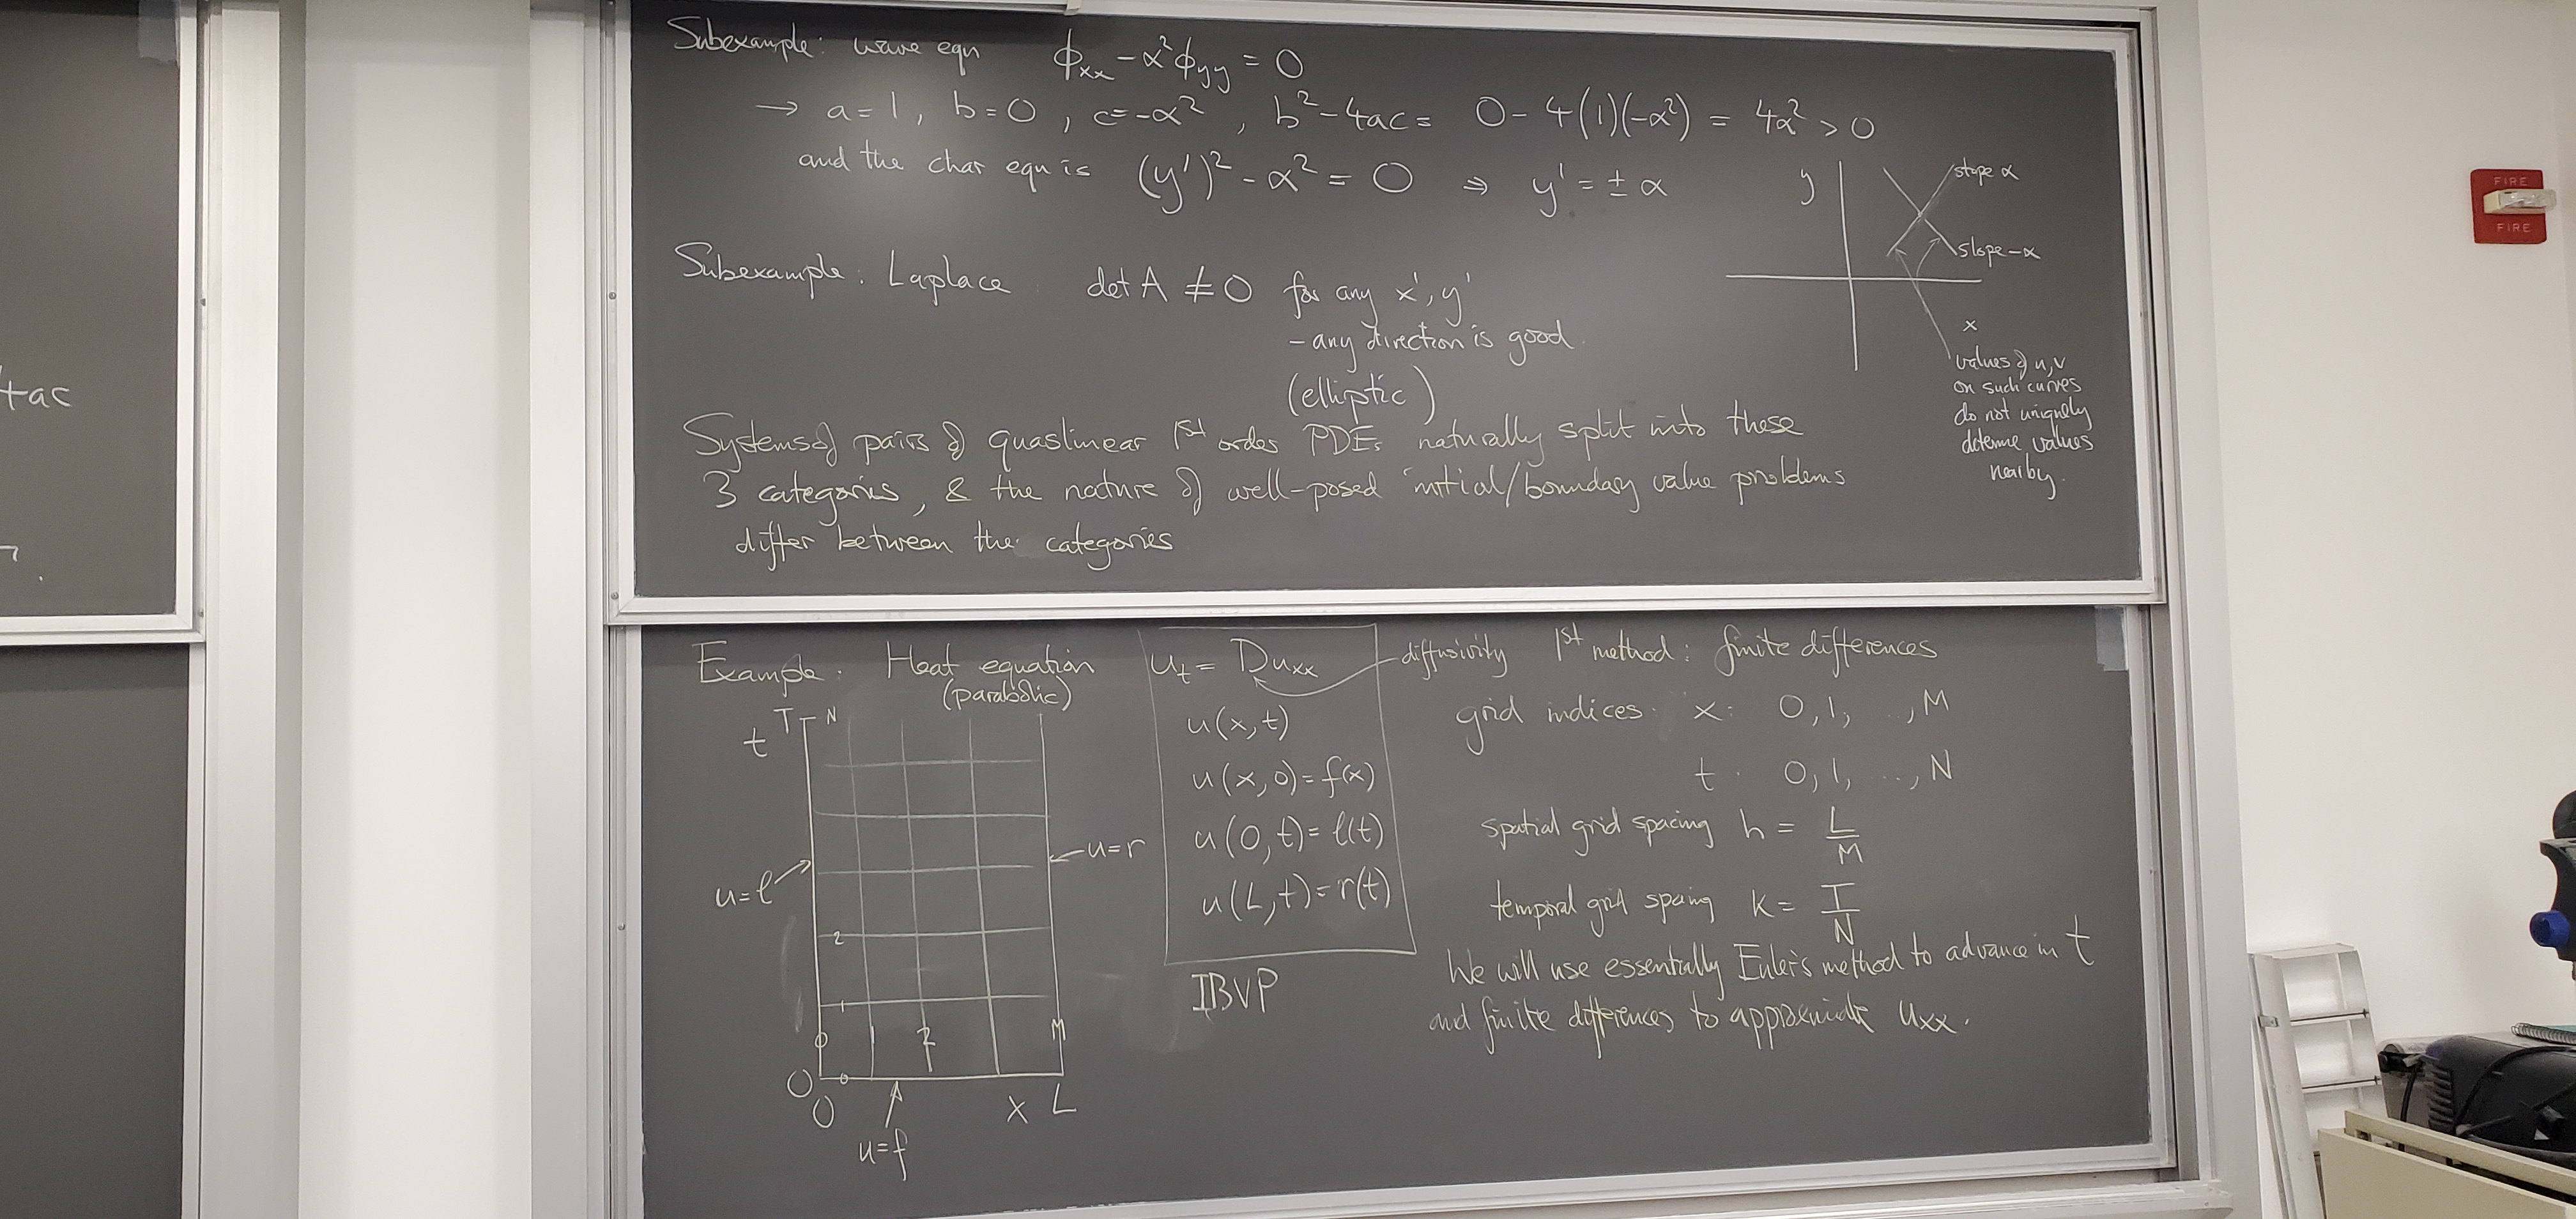 Subexample: wave eqn ϕxx - α²ϕyy = 0
→ a=1, b=0, c=-α², b²-4ac = 0-4(1)(-α²) = 4α² > 0
and the char eqn is (y')² - α² = 0 ⇒ y' = ± α
y
slope α
slope -α
x
values of u,v
on such curves
do not uniquely
determe values
nearby.
Subexample: Laplace det A ≠ 0 for any x', y'
- any direction is good.
(elliptic)
Systems of pairs of quaslinear 1st order PDEs naturally split into these
3 categories, & the nature of well-posed initial/boundary value problems
differ between the categories
+ac
Example: Heat equation
(parabolic)
ut = Duxx
diffusivity
u(x,t)
u(x,0)=f(x)
u(0,t)=l(t)
u(L,t)=r(t)
IBVP
T N
t
u=l
u=r
2
1
0 1 2 M
0 0
0 x L
u=f
1st method: finite differences
grid indices: x: 0,1, ..., M
t: 0,1, ..., N
spatial grid spacing h = L/M
temporal grid spaing k = T/N
We will use essentially Euler's method to advance in t
and finite differences to approximate uxx.
FIRE
FIRE